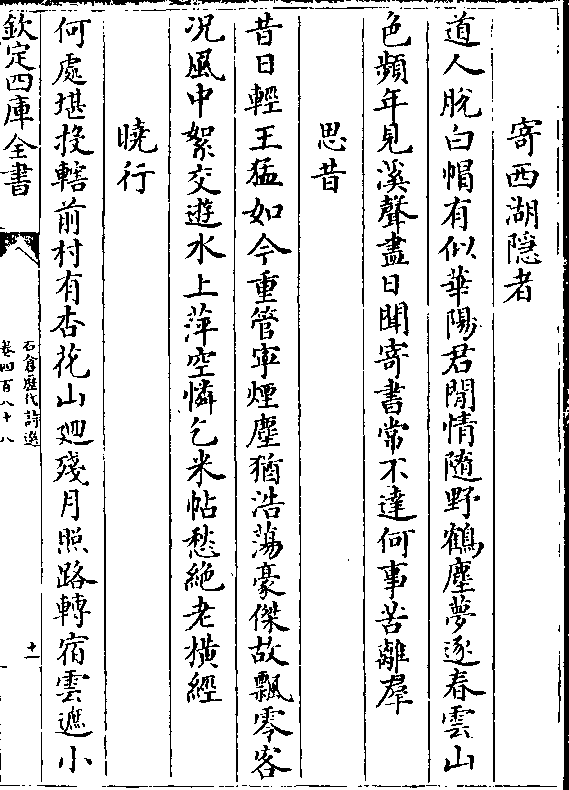 寄西湖隐者
道人脫白帽有似華陽君閒情随野鶴塵夢逐春雲山
色頻年見溪聲盡日聞寄書常不達何事苦離羣
思昔
昔日輕王猛如今重管寧煙塵猶浩蕩豪傑故飄零客
况風中絮交遊水上萍空憐乞米帖愁絶老橫經
曉行
何處堪投轄前村有杏花山廻殘月照路轉宿雲遮小
欽定四庫全書
石倉歷代詩選
卷四百八十八
十一